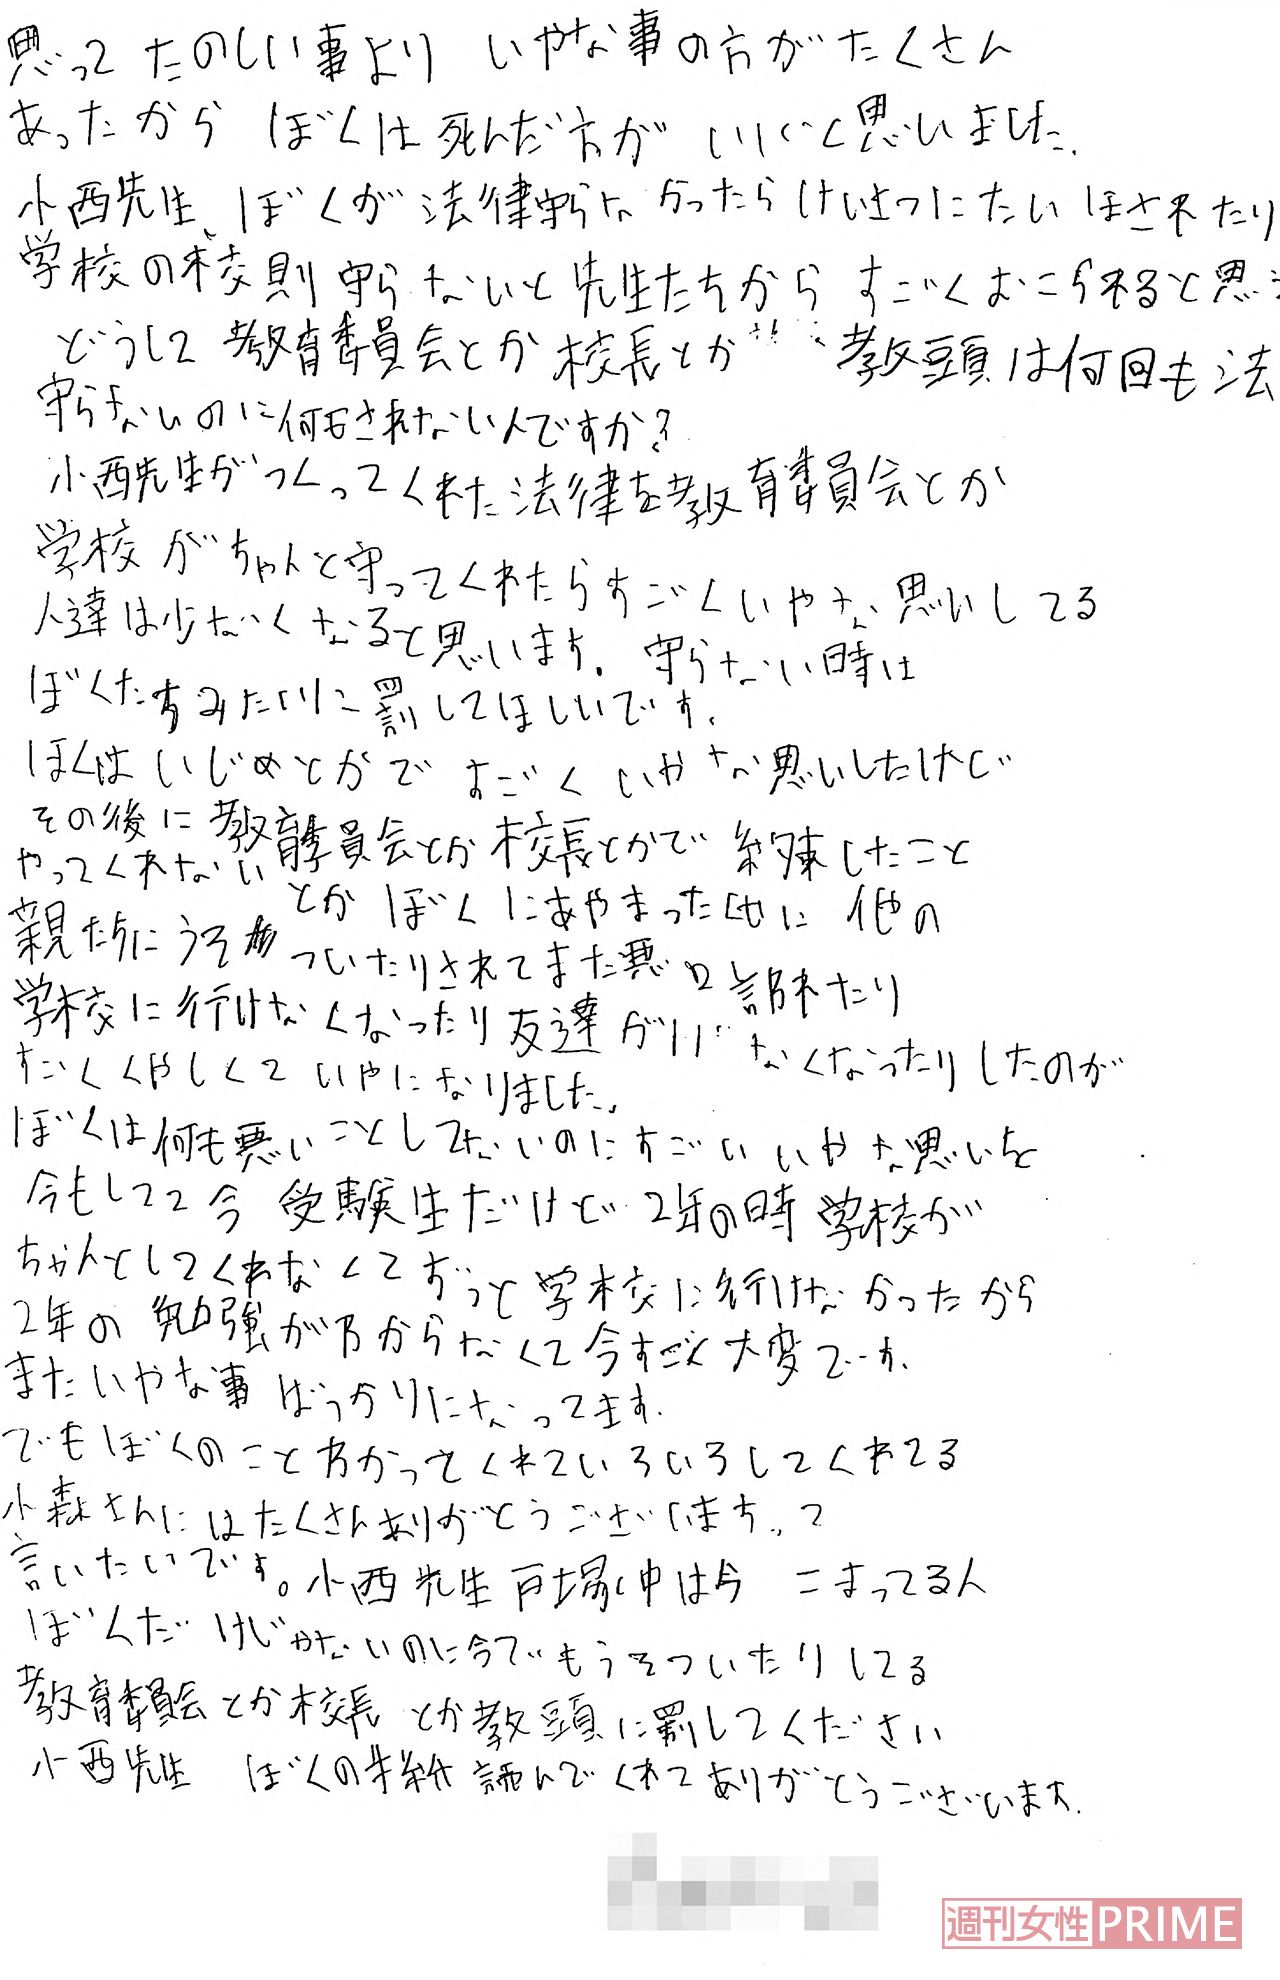 思って たのしい事より いやな事の方がたくさん
あったから ぼくは 死んだ方が いいと思いました。
小西先生、ぼくが 法律守らなかったらけいさつにたいほされたり
学校の校則守らないと先生たちから すごくおこられると思う
どうして 教育委員会とか校長とか 教頭は何回も法
守らないのに何もされないんですか?
小西先生がつくってくれた法律を教育委員会とか
学校がちゃんと守ってくれたらすごくいやな思いしてる
人達は少なくなると思います。守らない時は
ぼくたちみたいに罰してほしいです。
ぼくは いじめとかで すごく いやな思いしたけど
その後に教育委員会とか校長とかで 約束したこと
やってくれない とか ぼくにあやまった 他の
親たちにうそ ついたりされてまた悪口言われたり
学校に行けなくなったり友達が いなくなったりしたのが
すごくくやしくていやになりました。
ぼくは何も悪いことしてないのにすごい いやな思いを
今もしてて今 受験生だけど 2年の時 学校が
ちゃんとしてくれなくてずっと学校に行けなかったから
2年の 勉強がわからなくて今すごく大変です。
またいやな事 ばっかりになってます。
でもぼくのことわかってくれていろいろしてくれてる
小森さんにはたくさんありがとうございます。って
言いたいです。小西先生 戸塚中は今 こまってる人
ぼくだけじゃないのに今でもうそついたりしてる
教育委員会とか校長 とか教頭に罰してください
小西先生 ぼくの手紙 読んでくれてありがとうございます。
週刊女性PRIME